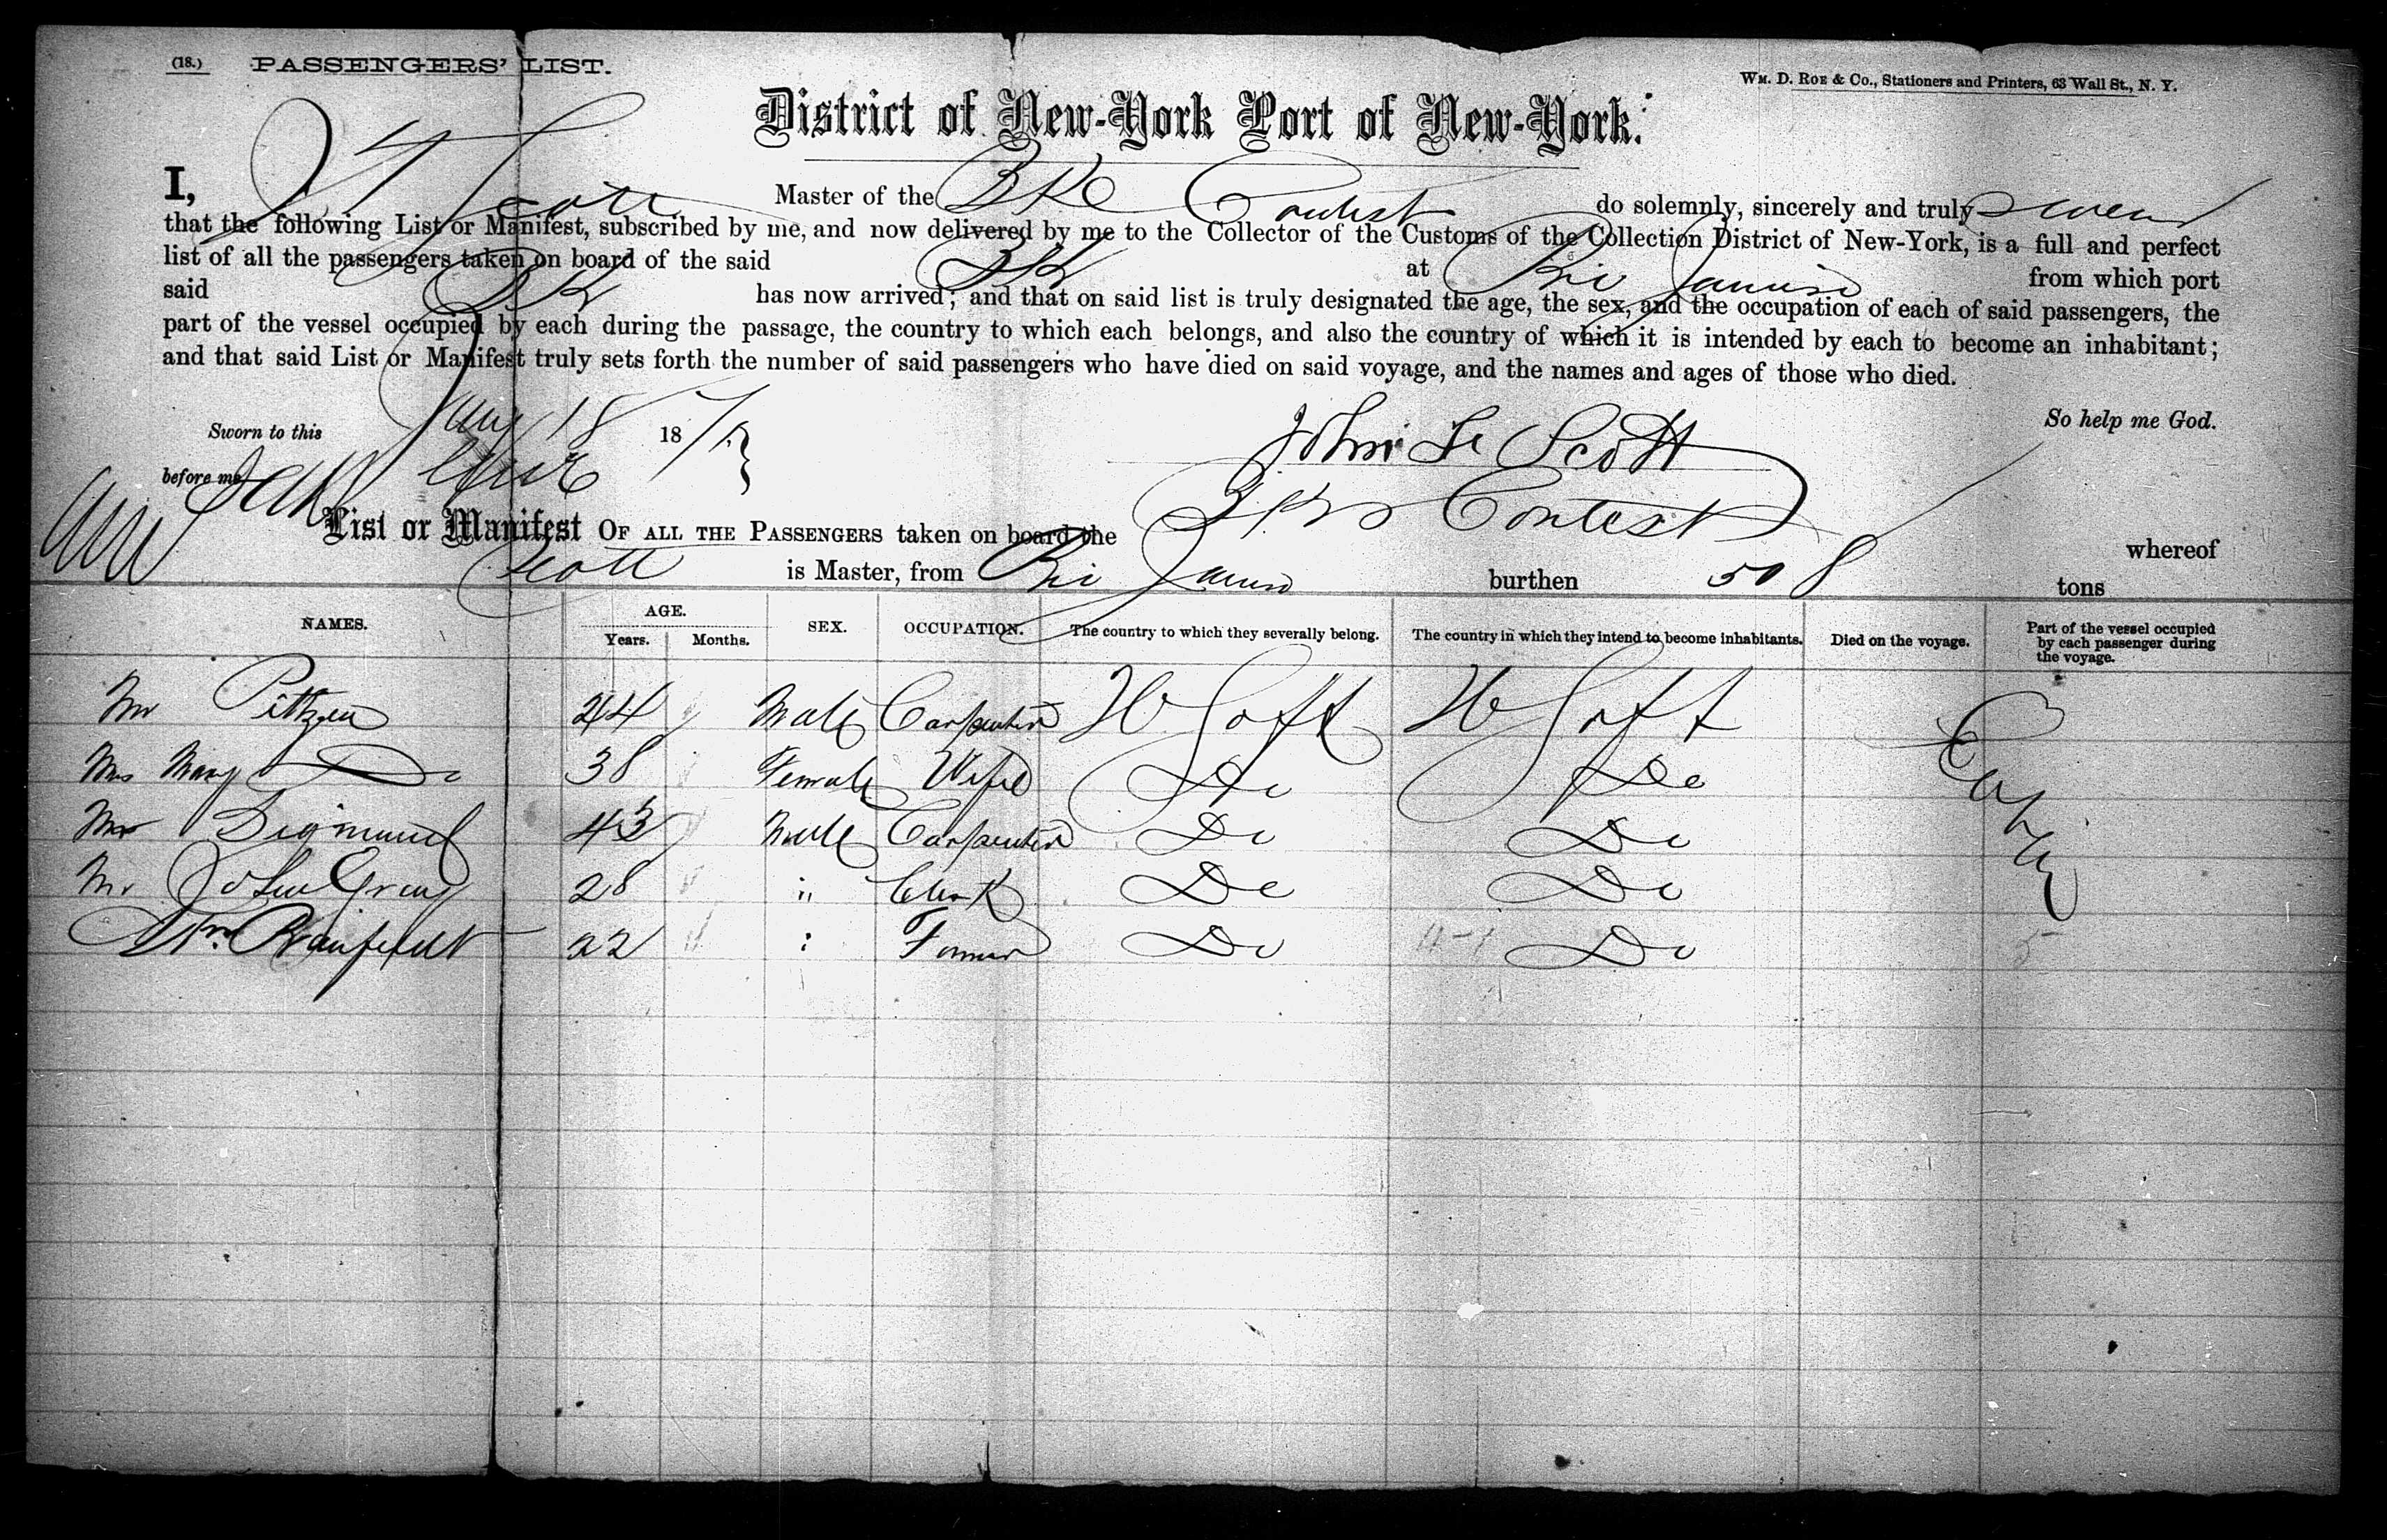 (18.) PASSENGERS' LIST.
Wm. D. Roe & Co., Stationers and Printers, 63 Wall St., N. Y.
District of New-York Port of New-York.
I, Scott Master of the Bk Contest do solemnly, sincerely and truly swear
that the following List or Manifest, subscribed by me, and now delivered by me to the Collector of the Customs of the Collection District of New-York, is a full and perfect
list of all the passengers taken on board of the said Bk at Rio Janeiro from which port
said Bk has now arrived; and that on said list is truly designated the age, the sex, and the occupation of each of said passengers, the
part of the vessel occupied by each during the passage, the country to which each belongs, and also the country of which it is intended by each to become an inhabitant;
and that said List or Manifest truly sets forth the number of said passengers who have died on said voyage, and the names and ages of those who died.
So help me God.
Sworn to this 18 18
before me
John Scott
List or Manifest OF ALL THE PASSENGERS taken on board the Contest whereof
Scott is Master, from Rio Janeiro burthen 508 tons
NAMES. AGE. Years. Months. SEX. OCCUPATION. The country to which they severally belong. The country in which they intend to become inhabitants. Died on the voyage. Part of the vessel occupied by each passenger during the voyage.
Mr 44 Male Carpenter
Mrs Mary Do 38 Female Wife Do Do
Mr 43 Male Carpenter Do Do
Mr 28 " Clerk Do Do
22 : Farmer Do Do